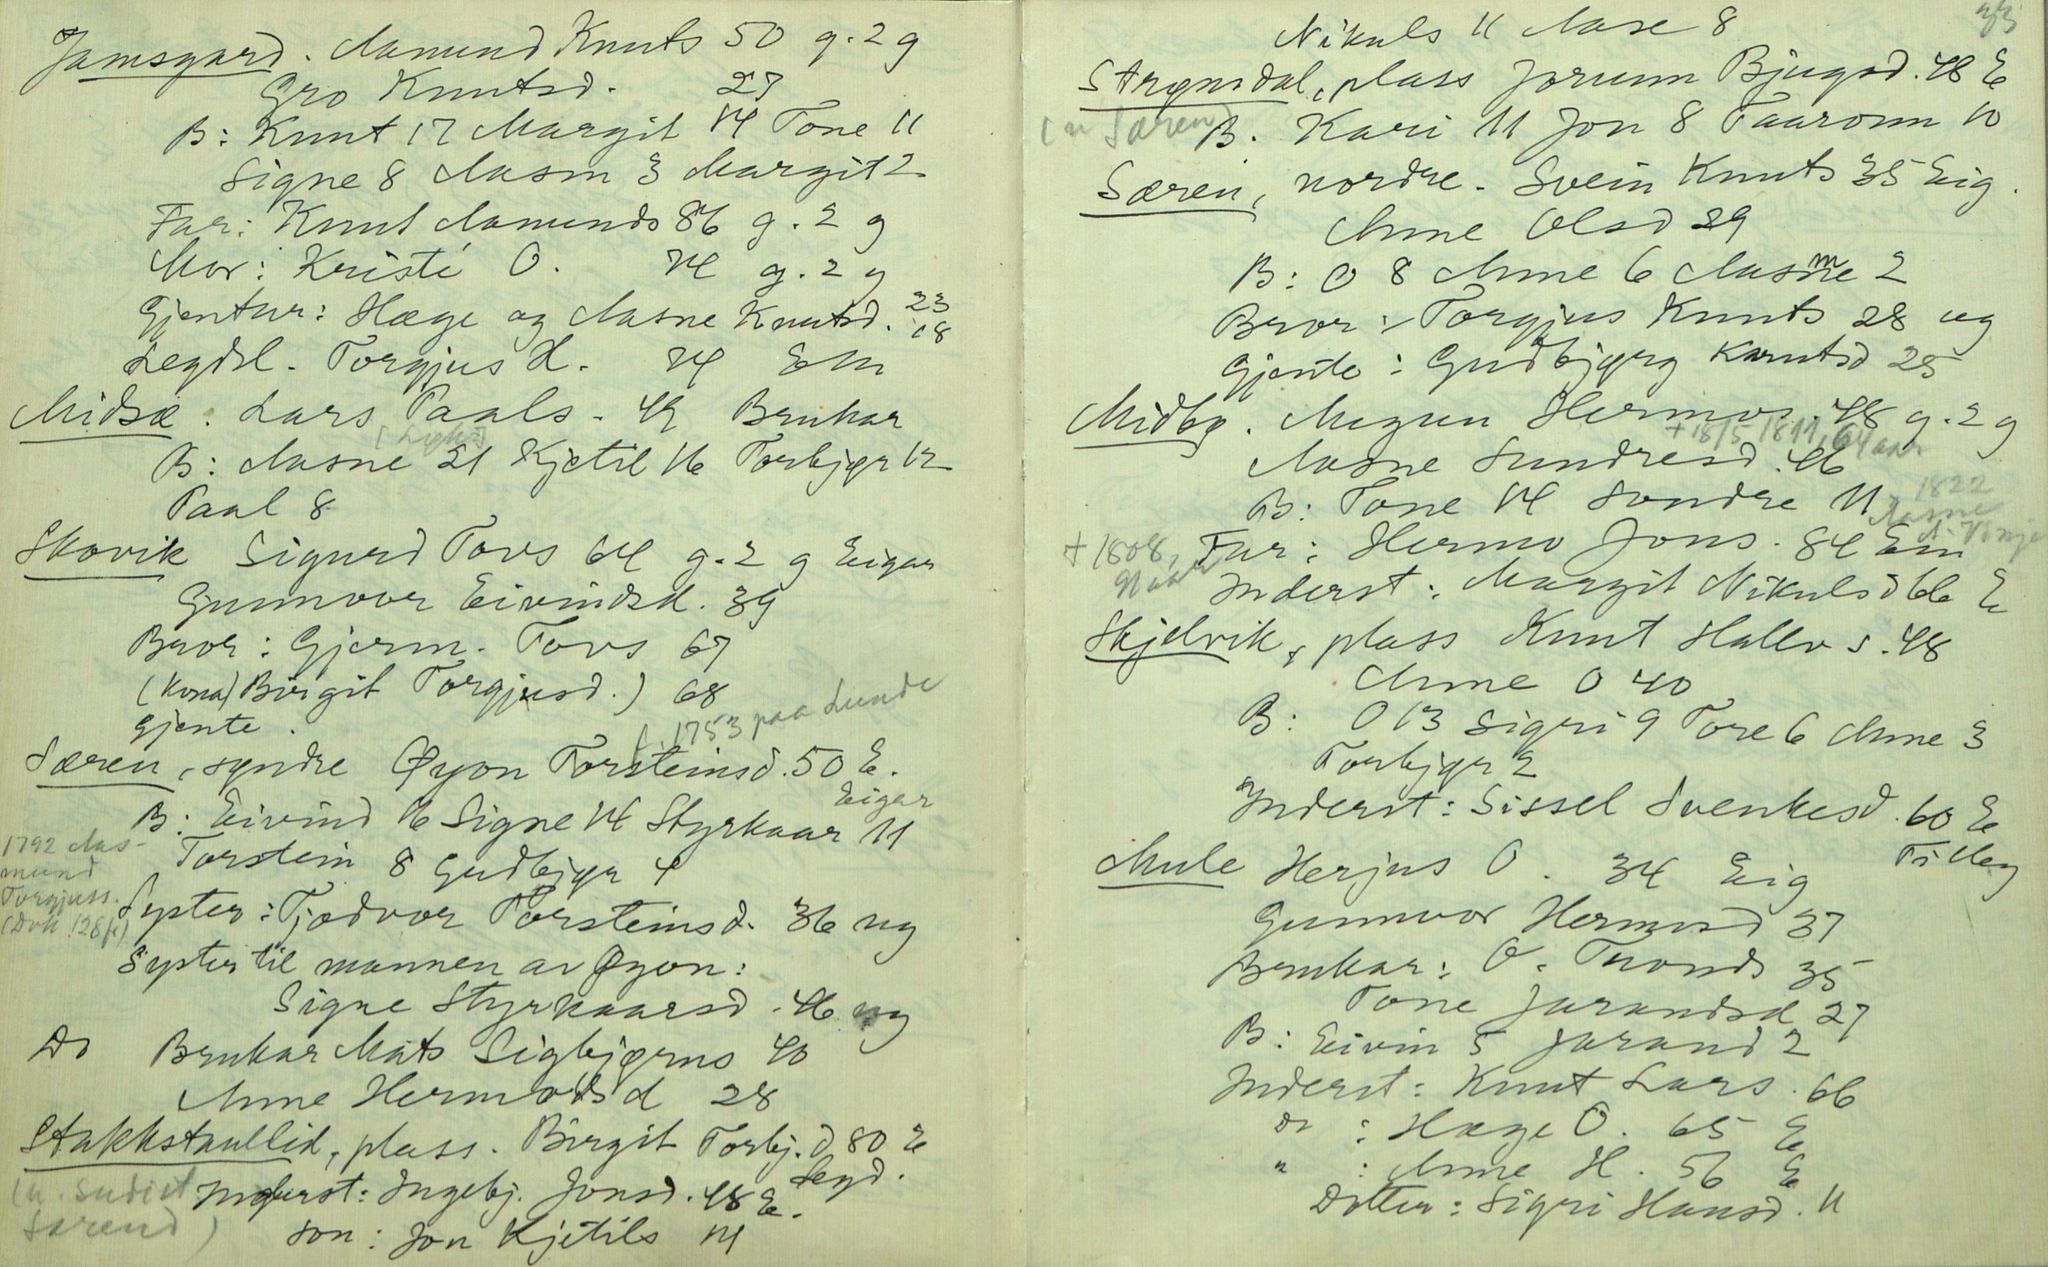 Jamsgard. Aamund Knuts 50 g. 2 g
Gro Knutsd. 27
B: Knut 17 Margit 14 Tone 11
Signe 8 Aasm 3 Margit 2
Far: Knut Aamunds 86 g. 2 g
Mor: Kristi O. 74 g. 2 g
Gjentur: Hæge og Aasne Knutsd. 23 18
Legdsl. Torgjus H. 74 Em
Midsæ. Lars Paals. 49 Brukar
B: Aasne 21 Kjetil 16 Torbjør 12
Paal 8
Skovik Sigurd Tovs 64 g. 2 g Eigar
Gunnvor Eivindsd. 39
Bror: Gjerm. Tovs 67
(Kona) Birgit Torgjusd.) 68
Gjente.
f. 1753 paa Lunde
Særen, syndre Øyon Torsteinsd. 50 E.
Eigar
B: Eivind 16 Signe 14 Styrkaar 11
Torstein 8 Gudbjør 4
1792 Aas-
mund
Torgjuss.
Syster: Tjodvor Torsteinsd. 36 ug
Syster til mannen av Øyon:
Signe Styrkaarsd. 46 ug
Do Brukar Mats Sigbjørns 40
Anne Hermodsd 28
Stakkstaullid, plass. Birgit Torbj. d 80 E
Legd.
Inderst: Ingebj. Jonsd. 48 E.
Son: Jon Kjetils 14
33
Nikuls 11 Aase 8
Strømdal, plass Jorunn Bjugsd. 48 E
(u Særen)
B. Kari 11 Jon 8 Taaronn 10
Særen, nordre. Svein Knuts 35 Eig.
Anne Olsd 29
B: O 8 Anne 6 Aasm 2
Bror: Torgjus Knuts 28 ug
Gjente: Gudbjørg Knutsd 25
Midbø. Augun Hermos. 48 g. 2 g
+ 18/5 1811, 64 aar
Aasne Sundresd. 46
B: Tone 14 Sondre 11
1822
Aasne
A. Vinje
+ 1808,
Far: Hermo Jons. 84 Em
Inderst: Margit Nikulsd 66 E
Skjelvik, plass Knut Hallvs. 48
Anne O 40
B: O 13 Sigri 9 Tore 6 Anne 3
Torbjør 2
Inderst: Sissel Svenkesd. 60 E
Tilleg
Mule Herjus O. 34 Eig
Gunnvor Hermosd 37
Brukar: O. Tronds 35
Tone Jarandsd 27
B: Eivin 5 Jarand 2
Inderst: Knut Lars. 66
Do : Hæge O. 65 E
" : Anne H. 56 E
Dotter: Sigri Hansd. 11